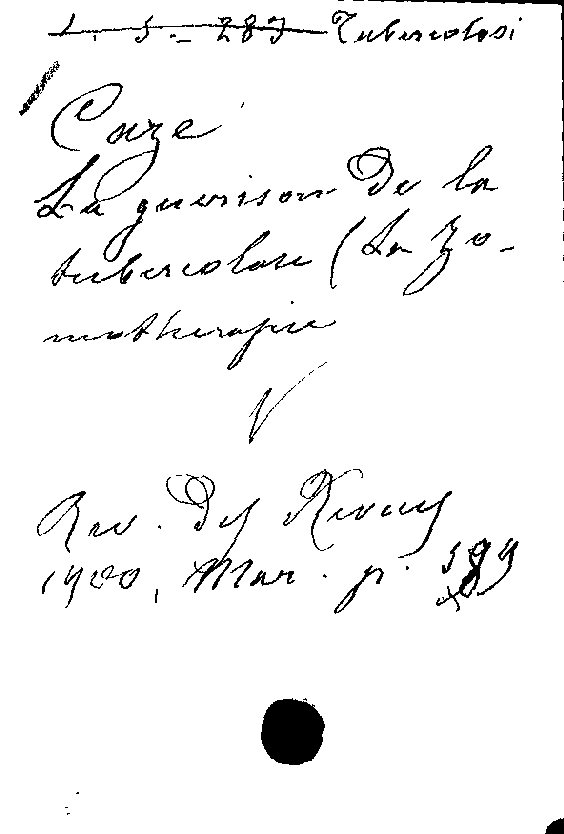 1. 5 - 287 Tubercolosi
Caze
La guerison de la
tubercolose (La Zo-
motherapie
V
Rev. des Revues
1900, Mar. p.